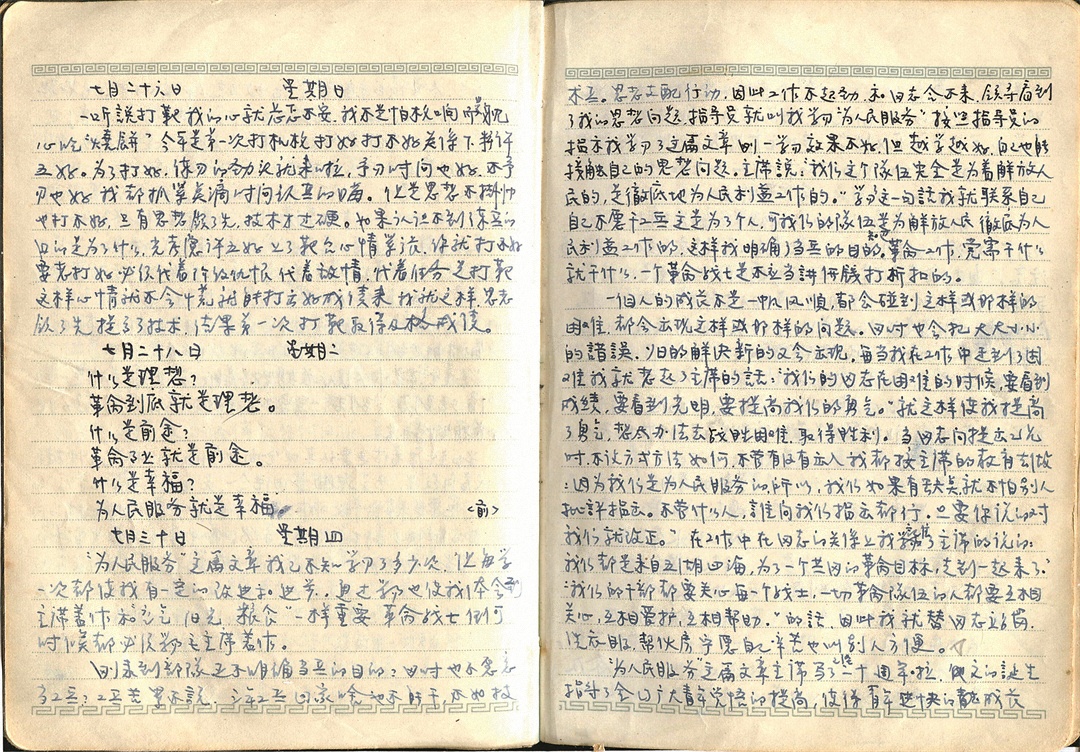 七月二十六日 星期日
一听説打靶我的心就忐忑不安，我不是怕枪响
心吃"燒餅"今年是第一次打机枪打好打不好差得下書评
五好。为了打好，练习的劲头就来啦，手习时间也好，不手
习也好我都抓紧点滴时间认真的
也打不好，只有思想领了先，技术才过硬。如果认识不到了練兵的
目的是为了什么，光考慮评五好上了靶台心情紧張，你就打不好
要想打好必须代着阶级仇恨代着敌情，代着任务是打靶
这样心情就不会慌就能打去好成绩来，我就这样，思想
领了先提高了技术，结果第一次打靶取得及格成绩。
七月二十八日 星期二
什么是理想？
革命到底就是理想。
什么是前途？
革命事业就是前途。
什么是幸福？
为人民服务就是幸福。 <前>
七月三十日 星期四
"为人民服务"这篇文章我已不知学习了多少次，但每学
一次都使我有一定的改造和进步，通过学习也使我体会到
主席著作和"空气 阳光，粮食"一样重要革命战士任何
时候都必须学习毛主席著作。
刚来到部隊还不明确当兵的目的，同时也不愿意
当工兵，工兵苦累不説，三年工兵回家啥也不能干，不如技
术兵。思想支配行动，因此工作不起劲，和同志合不来，領导看到
了我的思想问题，指导員就叫我学习"为人民服务"按照指导員的
指示我学习了这篇文章刚一学习效果不好，但越学越好，自己也能
接触自己的思想问题。主席説："我们这个隊伍完全是为着解放人
民的，是徹底地为人民利益工作的。"学习这一句話我就联系自己
自己不愿干工兵这是为了个人，可我们的隊伍是为解放人民徹底为人
民利益工作的，这样我明确了当兵的目的，知道革命工作，需需干什么
就干什么，一个革命战士是不应当講价錢打折扣的。
一個人的成长不是一帆风順，都会碰到这样或那样的
困难，都会出现这样或那样的问题。同时也会犯大大小小
的錯誤，旧的解决新的又会出现，每当我在工作中遇到了困
难我就想起了主席的話："我们的同志在困难的时候，要看到
成绩，要看到光明，要提高我们的勇气。"就这样使我提高
了勇气，想尽办法去战胜困难，取得胜利。当同志向提出意見
时，不论方式方法如何，不管有没有出入我都按主席的教育去做
："因为我们是为人民服务的，所以，我们如果有缺点，就不怕别人
批評指出。不管什么人，誰向我们指出都行。只要你说的对
我们就改正。"在工作中在同志的关係上我 了主席的说的：
我们都是来自五湖四海，为了一个共同的革命目标，走到一起来了。"
"我们的干部都要关心每一个战士，一切革命隊伍的人都要互相
关心，互相爱护，互相帮助。"的話，因此我就替同志站崗，
洗衣服，帮伙房宁愿自己辛苦也叫别人方便。
"为人民服务"这篇文章主席写了 十個周年啦，他的誕生
指导了全国广大青年觉悟的提高，使得青年 快的 成长